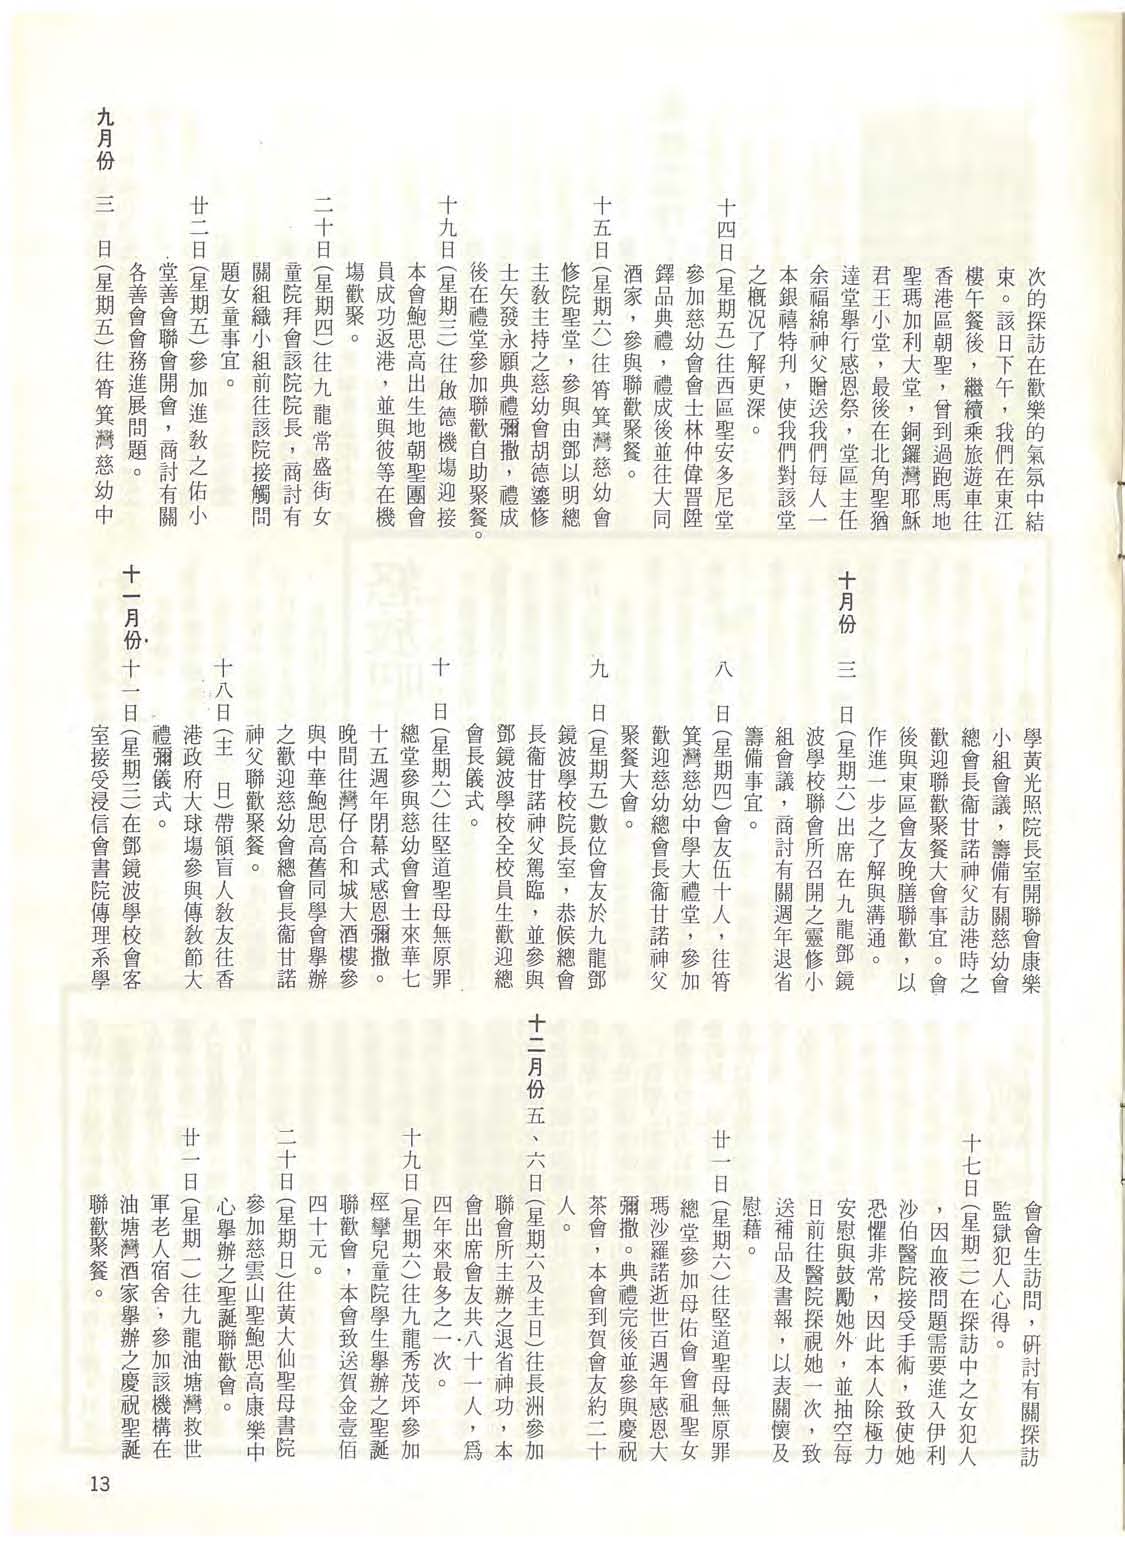 次的探訪在歡樂的氣氛中結
束。該日下午，我們在東江
樓午餐後，繼續乘旅遊車往
香港區朝聖，曾到過跑馬地
聖瑪加利大堂，銅鑼灣耶穌
君王小堂，最後在北角聖猶
達堂舉行感恩祭，堂區主任
余福綿神父贈送我們每人一
本銀禧特刋，使我們對該堂
之概况了解更深。
十四日(星期五)往西區聖安多尼堂
參加慈幼會會士林仲偉晋陞
鐸品典禮，禮成後並往大同
酒家，參與聯歡聚餐。
十五日(星期六)往筲箕灣慈幼會
修院聖堂，參與由鄧以明總
主敎主持之慈幼會胡德鎏修
士矢發永願典禮彌撒，禮成
後在禮堂參加聯歡自助聚餐。
十九日(星期三)往啟德機塲迎接
本會鮑思高出生地朝聖團會
員成功返港，並與彼等在機
塲歡聚。
二十日(星期四)往九龍常盛街女
童院拜會該院院長，商討有
關組織小組前往該院接觸問
題女童事宜。
廿二日(星期五)參加進敎之佑小
堂善會聯會開會，商討有關
各善會會務進展問題。
九月份 三 日(星期五)往筲箕灣慈幼中
學黃光照院長室開聯會康樂
小組會議，籌備有關慈幼會
總會長衞甘諾神父訪港時之
歡迎聯歡聚餐大會事宜。會
後與東區會友晚膳聯歡，以
作進一步之了解與溝通。
十月份 三 日(星期六)出席在九龍鄧鏡
波學校聯會所召開之靈修小
組會議，商討有關週年退省
籌備事宜。
八 日(星期四)會友伍十人，往筲
箕灣慈幼中學大禮堂，參加
歡迎慈幼總會長衞甘諾神父
聚餐大會。
九 日(星期五)數位會友於九龍鄧
鏡波學校院長室，恭候總會
長衞甘諾神父駕臨，並參與
鄧鏡波學校全校員生歡迎總
會長儀式。
十 日(星期六)往堅道聖母無原罪
總堂參與慈幼會會士來華七
十五週年閉幕式感恩彌撒。
晚間往灣仔合和城大酒樓參
與中華鮑思高舊同學會舉辦
之歡迎慈幼會總會長衞甘諾
神父聯歡聚餐。
十八日(主 日)帶領盲人敎友往香
港政府大球塲參與傳敎節大
禮彌儀式。
十一月份 十一日(星期三)在鄧鏡波學校會客
室接受浸信會書院傳理系學
會會生訪問，硏討有關探訪
監獄犯人心得。
十七日(星期二)在探訪中之女犯人
，因血液問題需要進入伊利
沙伯醫院接受手術，致使她
恐懼非常，因此本人除極力
安慰與鼓勵她外，並抽空每
日前往醫院探視她一次，致
送補品及書報，以表關懷及
慰藉。
廿一日(星期六)往堅道聖母無原罪
總堂參加母佑會會祖聖女
瑪沙羅諾逝世百週年感恩大
彌撒。典禮完後並參與慶祝
茶會，本會到賀會友約二十
人。
十二月份 五、六日(星期六及主日)往長洲參加
聯會所主辦之退省神功，本
會出席會友共八十一人，爲
四年來最多之一次。
十九日(星期六)往九龍秀茂坪參加
痙攣兒童院學生舉辦之聖誕
聯歡會，本會致送賀金壹佰
四十元。
二十日(星期日)往黃大仙聖母書院
參加慈雲山聖鮑思高康樂中
心舉辦之聖誕聯歡會。
廿一日(星期一)往九龍油塘灣救世
軍老人宿舍，參加該機構在
油塘灣酒家舉辦之慶祝聖誕
聯歡聚餐。
13